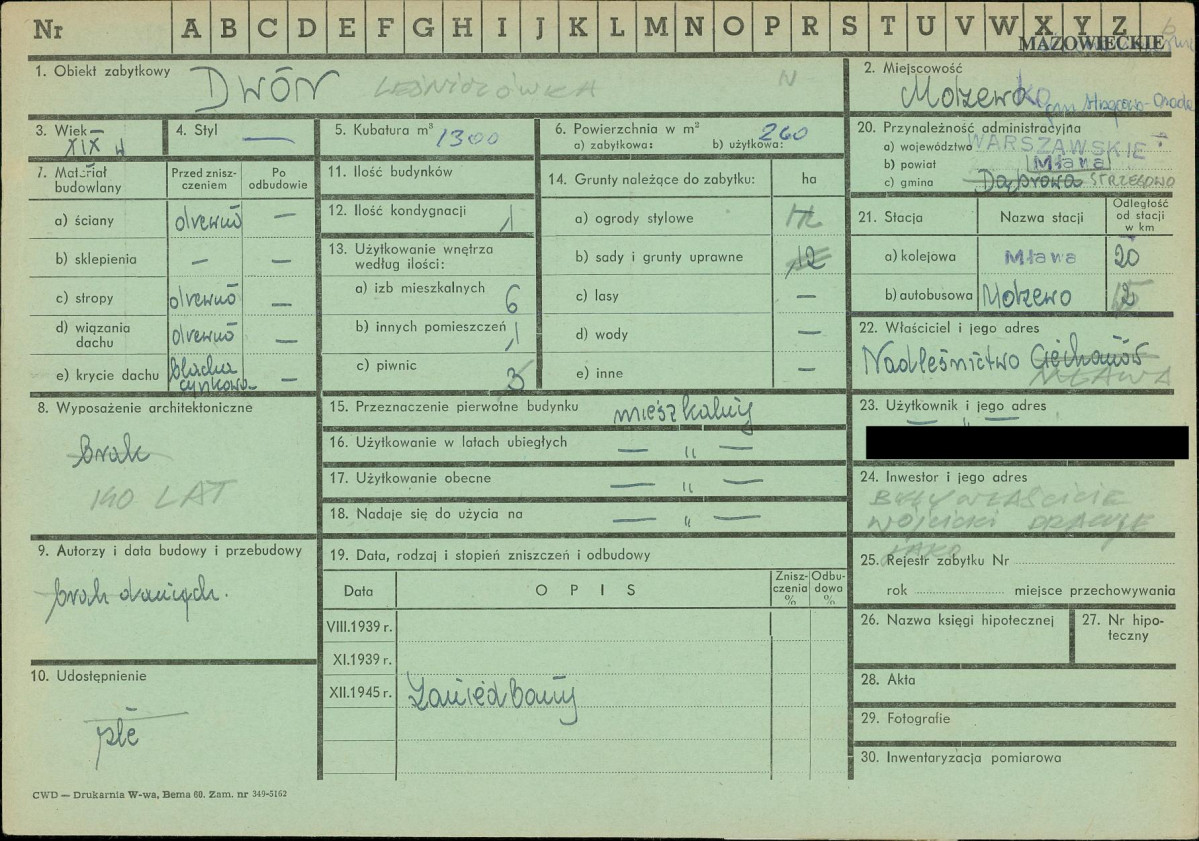 Nr A B C D E F G H I J K L M N O P R S T U V W X Y Z
MAZOWIECKIE
1. Obiekt zabytkowy DWÓR LEŚNICZÓWKA N
2. Miejscowość
Mdzewko
3. Wiek XIX w
4. Styl —
5. Kubatura m³ 1300
6. Powierzchnia w m²
a) zabytkowa: b) użytkowa: 260
20. Przynależność administracyjna
a) województwo WARSZAWSKIE
b) powiat Mława
c) gmina Dąbrowa STRZEGOWO
7. Materiał budowlany
Przed zniszczeniem
Po odbudowie
a) ściany drewno —
b) sklepienia — —
c) stropy drewno —
d) wiązania dachu drewno —
e) krycie dachu blacha cynkowa —
11. Ilość budynków
12. Ilość kondygnacji 1
13. Użytkowanie wnętrza według ilości:
a) izb mieszkalnych 6
b) innych pomieszczeń 1
c) piwnic
14. Grunty należące do zabytku: ha
a) ogrody stylowe
b) sady i grunty uprawne 12
c) lasy —
d) wody —
e) inne —
21. Stacja
Nazwa stacji
Odległość od stacji w km
a) kolejowa Mława 20
b) autobusowa Mdzewo
22. Właściciel i jego adres
Nadleśnictwo Ciechanów
MŁAWA
8. Wyposażenie architektoniczne
brak
140 LAT
15. Przeznaczenie pierwotne budynku mieszkalny
16. Użytkowanie w latach ubiegłych — „ —
17. Użytkowanie obecne — „ —
18. Nadaje się do użycia na — „ —
23. Użytkownik i jego adres
— „ —
24. Inwestor i jego adres
BYŁY WŁAŚCICIE
WÓJCICKI PRACUJE
JAKO
9. Autorzy i data budowy i przebudowy
brak danych.
19. Data, rodzaj i stopień zniszczeń i odbudowy
Data
OPIS
Zniszczenia %
Odbudowa %
VIII.1939 r.
XI.1939 r.
XII.1945 r. Zaniedbany
25. Rejestr zabytku Nr
rok miejsce przechowywania
26. Nazwa księgi hipotecznej
27. Nr hipoteczny
10. Udostępnienie
złe
28. Akta
29. Fotografie
30. Inwentaryzacja pomiarowa
CWD — Drukarnia W-wa, Bema 60. Zam. nr 349-5162